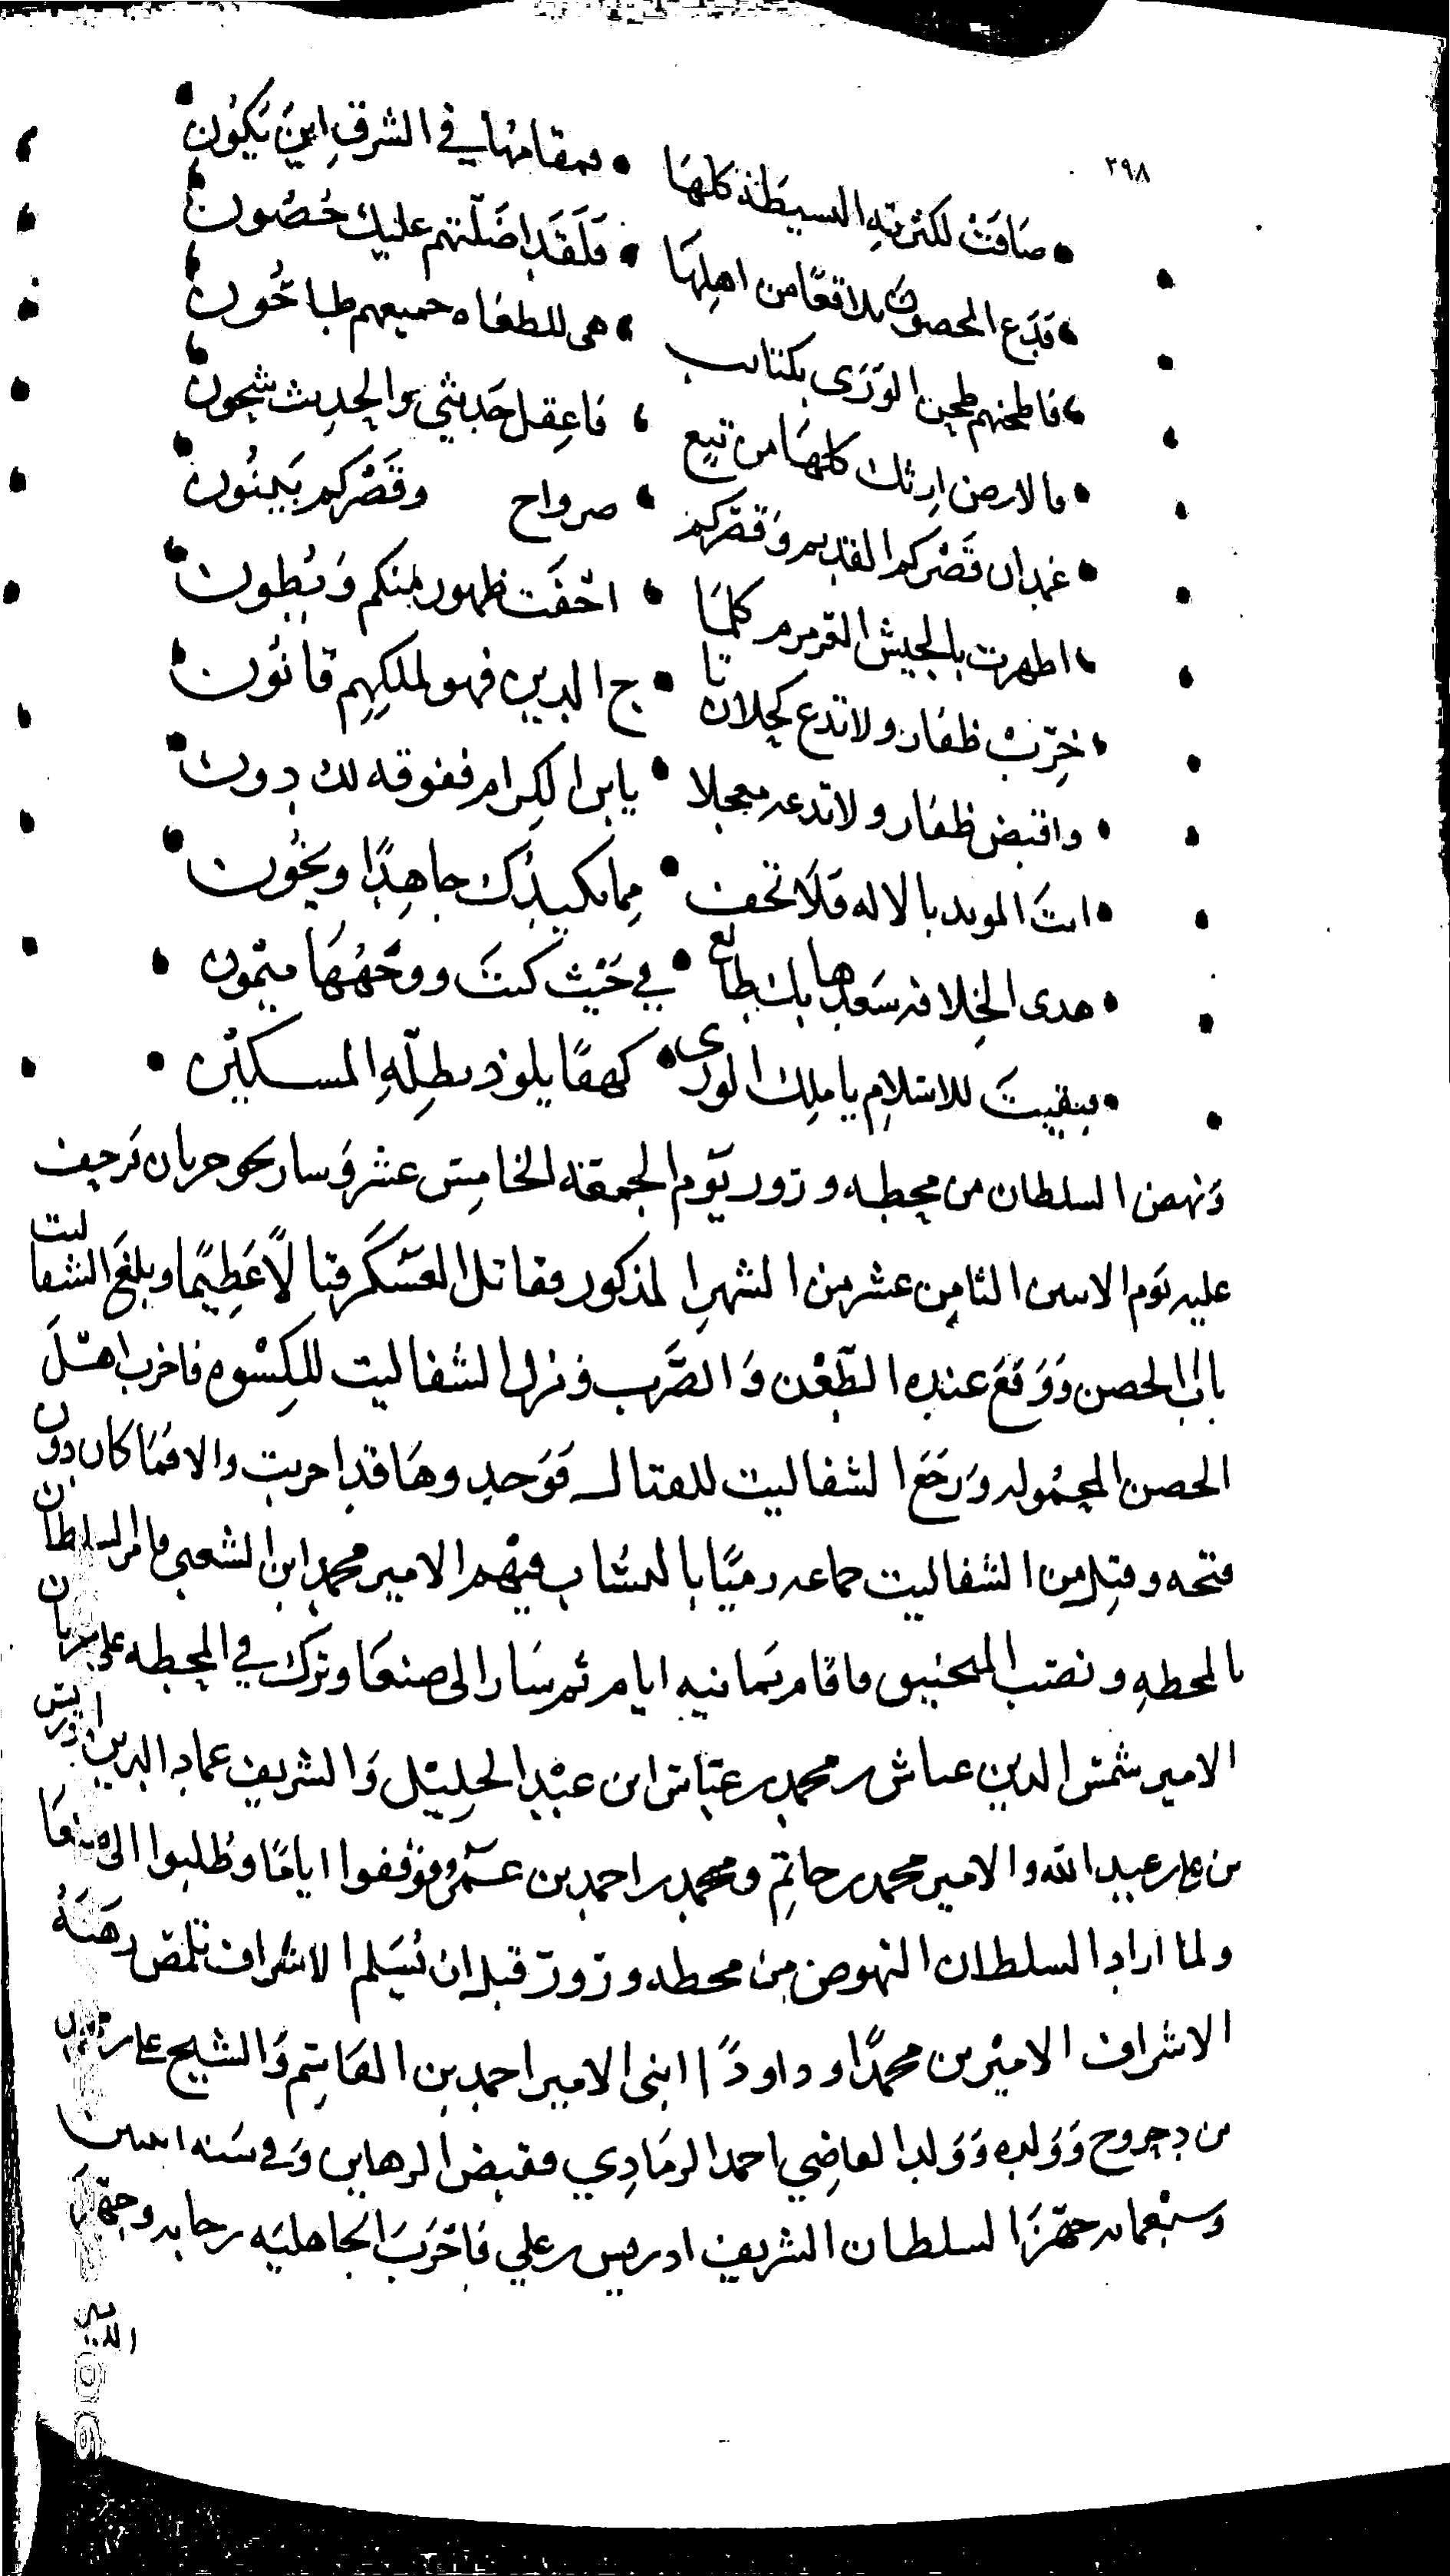 ٢٩٨
صَاقَتْ لكثرتهِ البسيطَة كلهَا • فمقامهَا في الشرقِ اينَ يَكوُن
فدَع الحصون بلاقعًا من اهلِهَا • فَلَقَد اضَلّتهم عليك حُصُون
فاطحنهم طحين الوَرَى بكتايب • هى للطغاه جميعهم طاحُون
فالارض ارثك كلهَا من تبع • فاعقِل حَديثي والحديث شجون
غمدان قَصْركم القديم وَقصَركم • صرواح وقَصْركم بَينُون
اظهرت بالجيش العرمرم كلمَا • اخفَت ظهور منكم وَبُطون
خرّبْ ظفار ولا تدع كحلان تا • ج الدين فهو لملكِهِم قانوُن
واقبض ظفار ولا تدعه معجلا • يابن الكِرام ففوقه لك دون
انتَ المويد بالاله فَلَا تخف • مما يكيدُك جاهِدًا ويخوُن
هدى الخِلافه سَعدها بك طالع • في حَيْث كنتَ ووجَهُهَا ميمون
فبقيتَ للاسْلامِ يا ملِك الورى • كهفًا يلوذ بظِلّهِ المسكيْن
وَنهض السلطان من محطه ورور يَوم الجمعَة الخامِس عشر وَسار نحو حربان فرجف
عليه يَوم الاسن الثامِن عشر من الشهرِ المذكور فقاتل العَسْكَر قتالًا عَظِيمًا وبلغَ الشفاليت
باب الحصن وَوَقَعَ عنده الطّعْن وَالضَّرب وَنزل الشفاليت للكِسْوه فاخرب اهل
الحصن المحموله وَرَجَعَ الشفاليت للقتال فوَجدوهَا قد اخربت والا فمَا كان دون
فتحه وقتِل من الشفاليت جماعه رميًا بالنشاب فيْهم الامير محمد ابن الشعبى فامر السلطان
بالمحطهِ ونصَب المنجنيق فاقام ثمانيه ايام ثم سَار الى صنعَا وترك في المحطه على حربان
الامير شمسْ الدين عباس بن محمد بن عبّاس ابن عبْد الجليل وَالشريف عماد الدين ادريس
بن على بن عبد الله والامير محمد بن حاتِم ومحمد بن احمد بن عمرو فوقفوا ايامًا وطُلبوا الى صنعَا
ولما اراد السلطان النهوض مِن محطه ورور قبل ان يُسَلم الاشراف تلمص رهَنهُ
الاشراف الاميْرين محمدًا وداودً ابنى الامير احمد بن القاسِم وَالشيخ على بن
بن دحروح وَوَلده وَوَلد القاضِي احمد الرمَادِي فقبض الرهاين وَفى سَنه اثنتين
وسبْعمايه جهّزَ السلطان الشريف ادريس بن علي فاخْرَبَ الجاهليَه وجهز